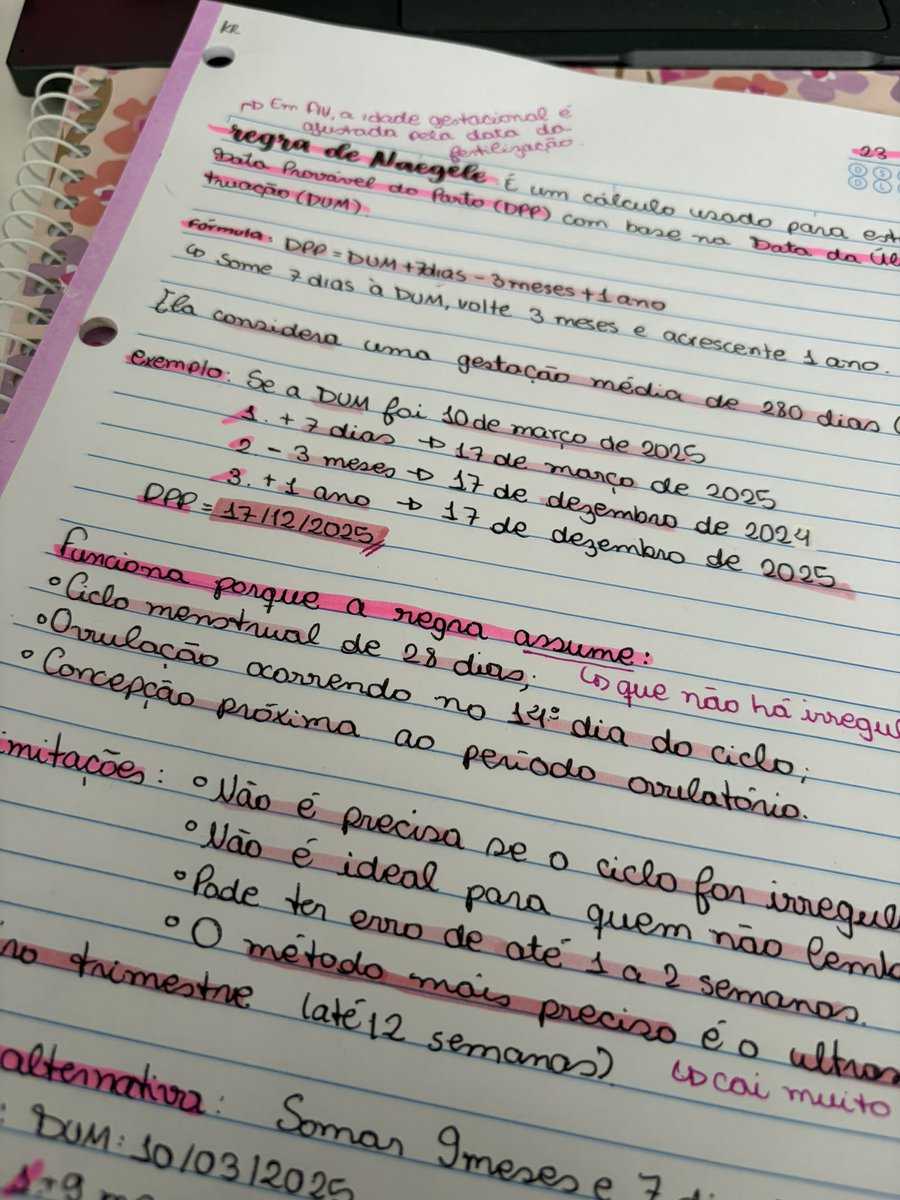 KR
↳ Em FIV, a idade gestacional é
ajustada pela data da
fertilização.
23
regra de Naegele É um cálculo usado para est
Data Provável do Parto (DPP) com base na Data da Úl
truação (DUM).
Fórmula: DPP = DUM + 7dias - 3meses + 1 ano
↳ Some 7 dias à DUM, volte 3 meses e acrescente 1 ano.
Ela considera uma gestação média de 280 dias (
exemplo: Se a DUM foi 10 de março de 2025
1. + 7 dias → 17 de março de 2025
2. - 3 meses → 17 de dezembro de 2024
3. + 1 ano → 17 de dezembro de 2025
DPP = 17/12/2025
Funciona porque a regra assume:
° Ciclo menstrual de 28 dias; ↳ que não há irregul
° Ovulação ocorrendo no 14º dia do ciclo;
° Concepção próxima ao período ovulatório.
imitações: ° Não é precisa se o ciclo for irregul
° Não é ideal para quem não lemb
° Pode ter erro de até 1 a 2 semanas.
° O método mais preciso é o ultras
iro trimestre (até 12 semanas) ↳ cai muito
alternativa: Somar 9 meses e 7 di
: DUM: 10/03/2025
1. + 9 m